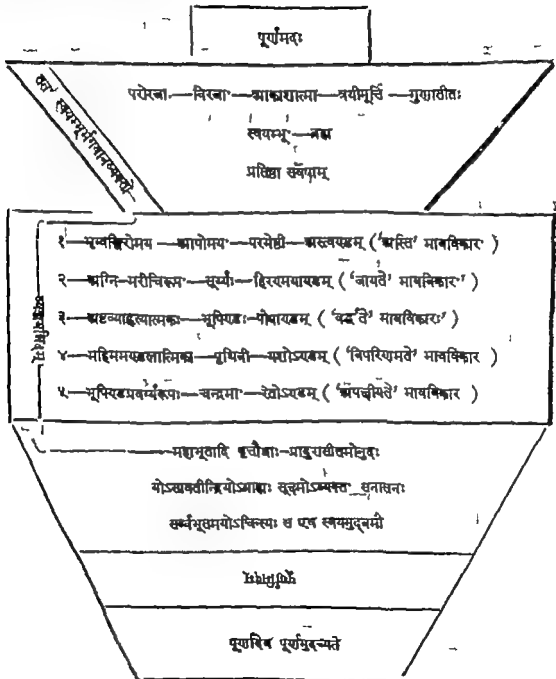 पूर्णमदः
ततः स्वयम्भूर्भगवानव्यक्तो
परोरजाः—विरजाः—आकाशात्मा—त्रयीमूर्त्ति—गुणातीतः
स्वयम्भूः—ब्रह्म
प्रतिष्ठा सर्वेषाम्
व्यञ्जयन्निदम्
१—भृग्वङ्गिरोमय—आपोमयः—परमेष्ठी—अस्त्वण्डम् ('अस्ति' भावविकारः)
२—अग्नि-मरीचिरूपः—सूर्य्यः—हिरण्मयाण्डम् ('जायते' भावविकारः)
३—भूपिण्डः—पोषाण्डम् ('वर्द्धते' भावविकारः)
४—महिममण्डलात्मिका—पृथिवी—यशोऽण्डम् ('विपरिणमते' भावविकार)
५—भूपिण्डप्रवर्ग्यरूपः—चन्द्रमा—रेतोऽण्डम् ('अपक्षीयते' भावविकार)
महाभूतादि वृत्तौजाः—प्रादुरासीत्तमोनुदः
योऽसावतीन्द्रियोऽग्राह्यः सूक्ष्मोऽव्यक्तः सनातनः
सर्वभूतमयोऽचिन्त्यः स एव स्वयमुद्बभौ
पूर्णमिदम्
पूर्णात् पूर्णमुदच्यते